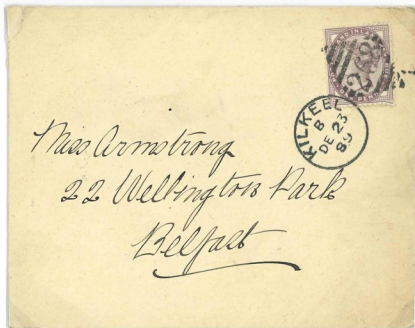 268
KILKEEL
B
DE 23
89
Miss Armstrong
22 Wellington Park
Belfast